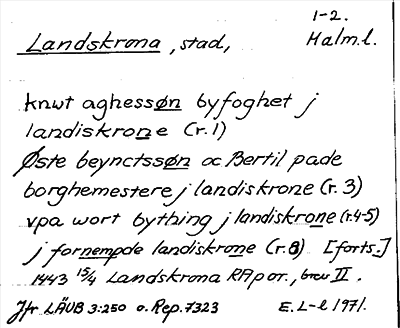 1-2.
Landskrona, stad, Malm.l.
knwt aghessøn byfoghet j
landiskrone (r.1)
Øste beynctssøn oc Bertil pade
borghemestere j landiskrone (r.3)
vpa wort bything j landiskrone (r.4-5)
j fornempde landiskrone (r.8) [forts.]
1443 15/4 Landskrona RAp or., brev II.
Jfr LÄUB 3:250 o. Rep. 7323 E.L-l 1971.